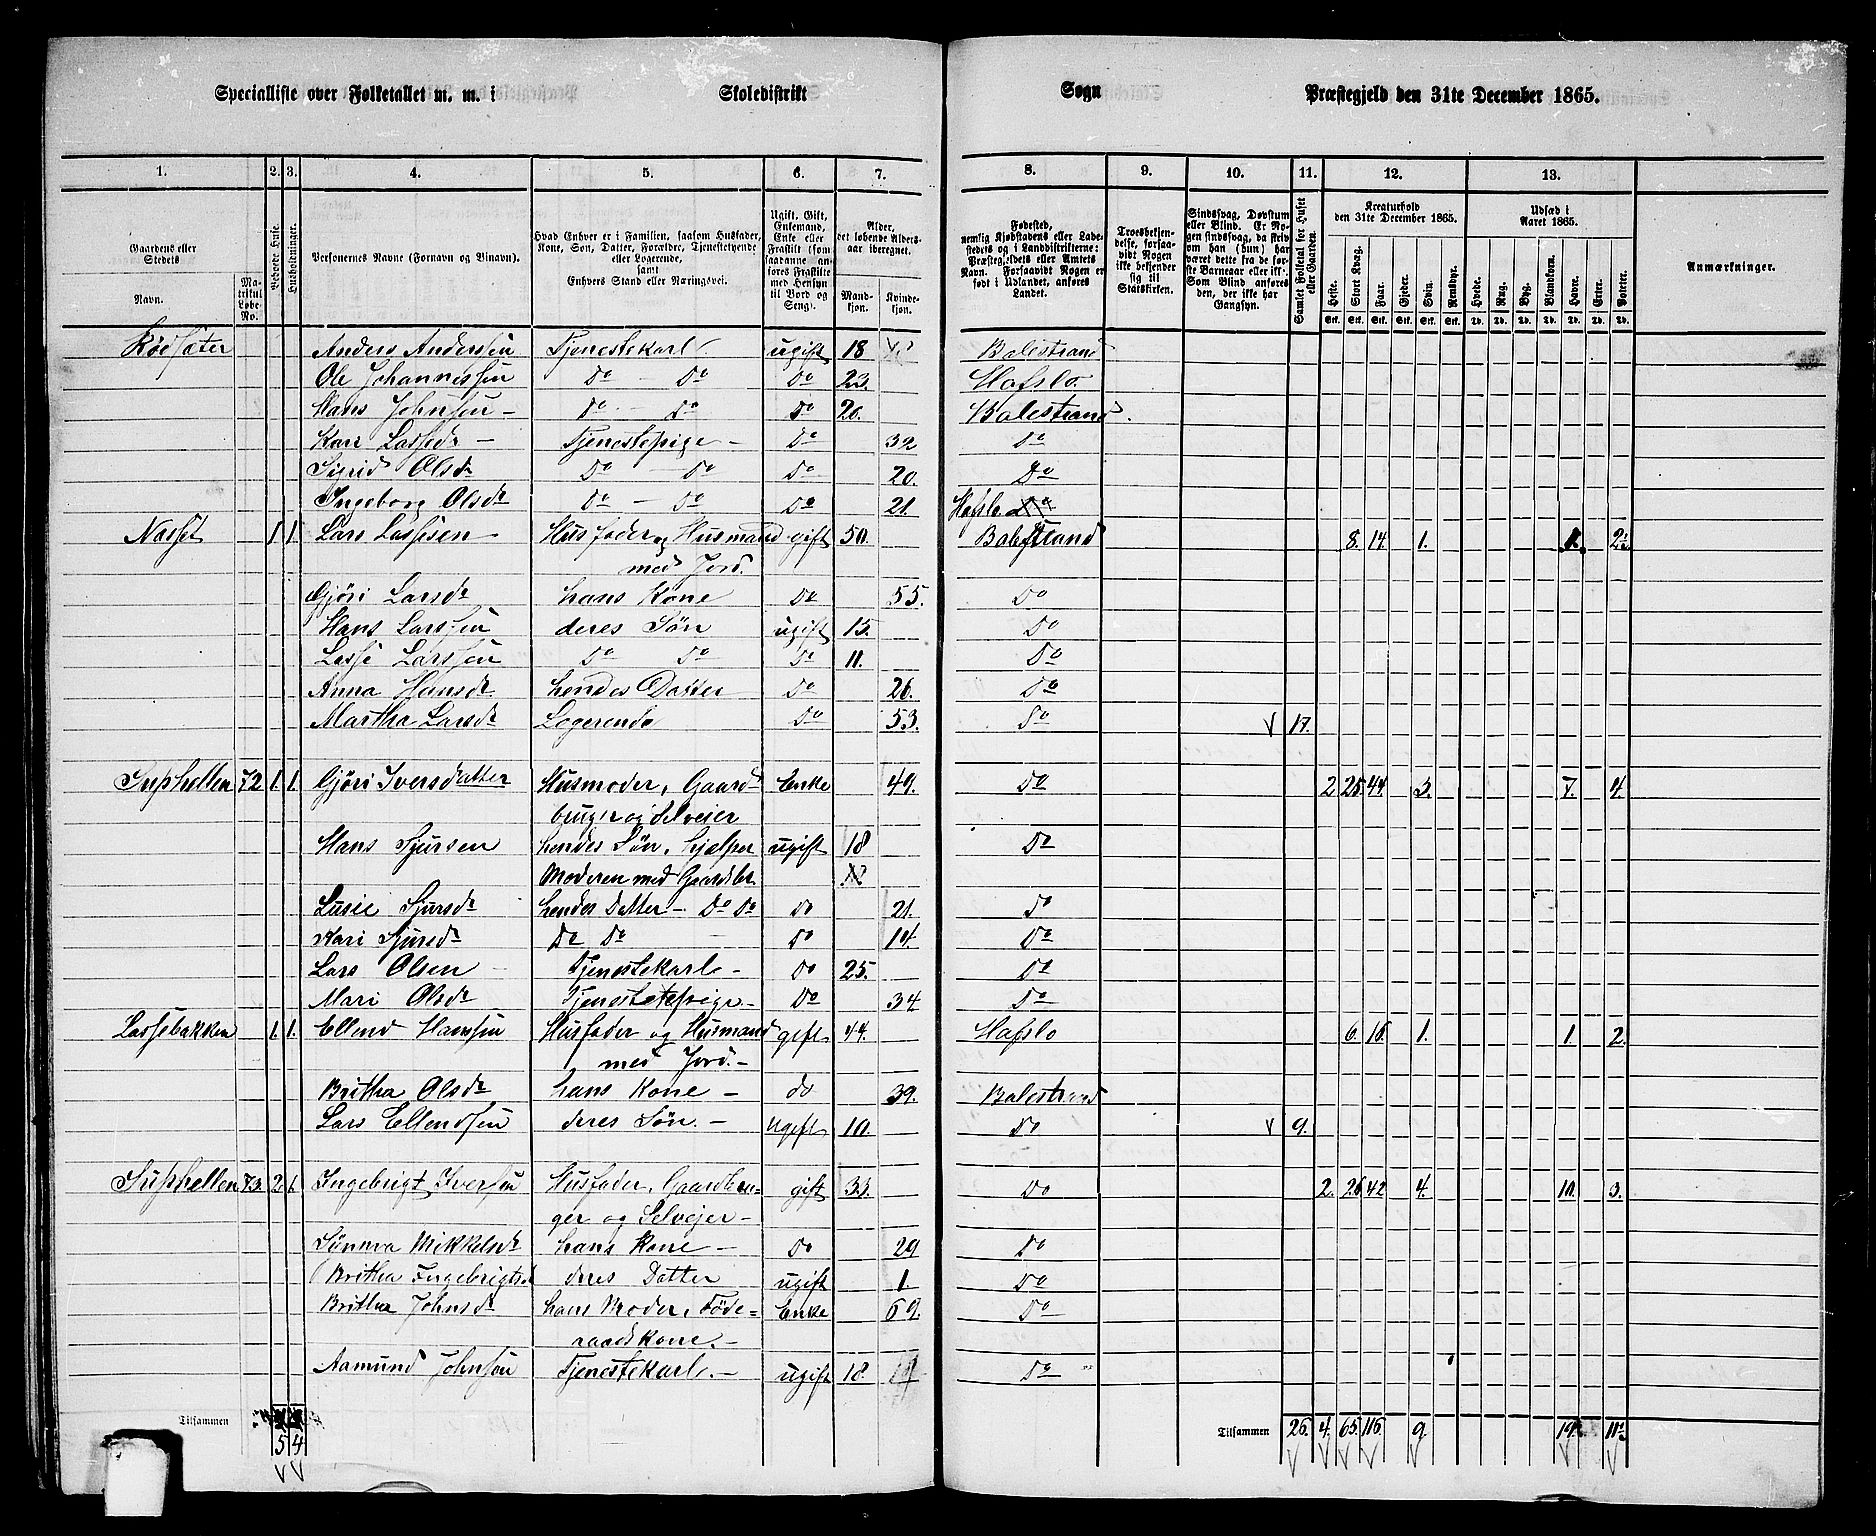 Specialliste over Folketallet m. m. i Skoledistrikt Sogn Præstegjeld den 31te December 1865.
1. 2. 3. 4. 5. 6. 7. 8. 9. 10. 11. 12. 13.
Gaardenes eller Stedets Navn. Matrikul Løbe-No. Beboede Huse. Husholdninger. Personernes Navne (Fornavn og Binavn). Hvad Enhver er i Familien, saasom Husfader, Kone, Søn, Datter, Forældre, Tjenestetyende eller Logerende, samt Enhvers Stand eller Næringsvei. Ugift, Gift, Enkemand, Enke eller Fraskilt (saadanne anføres som Fraskilte med Hensyn til Bord og Seng). Alder, det løbende Aldersaar iberegnet. Mandkjøn. Kvindekjøn.
Troesbekjendelse, forsaavidt Nogen ikke bekjender sig til Statskirken. Samlet Folketal for Huset eller Gaarden. Kreaturhold den 31te December 1865. Heste. Stort Kvæg. Faar. Gjeder. Svin. Rensdyr. Udsæd i Aaret 1865. Hvede. Rug. Byg. Blandkorn. Havre. Erter. Poteter. Anmærkninger.
Rødsæter Anders Anderssen Tjenestekarl ugift 18 Balestrand
Ole Johannessen Do — Do Do 23. Hafslo
Hans Johnsen Do — Do Do 20. Balestrand
Kari Lassedr Tjenestepige Do 32 Do
Sigrid Olsdr Do — Do Do 20. Do
Ingeborg Olsdr Do — Do Do 21. Hafslo
Næsset 1 1 Lars Lassesen Husfader og Husmand gift 50. Balestrand 8. 14. 1. 1. 2½
med Jord.
Gjøri Larsdr hans Kone Do 55. Do
Hans Larssen deres Søn ugift 15. Do
Lasse Larssen Do Do Do 11. Do
Anna Hansdr hendes Datter Do 26. Do
Martha Larsdr Logerende Do 53. Do 17.
Suphellen 72 1. 1. Gjøri Iversdatter Husmoder, Gaard- Enke 49. Do 2 25. 44. 3. 7. 4.
bruger og Selveier
Hans Sjursen hendes Søn, hjælper ugift 18 Do
Moderen med Gaardsbr.
Lusie Sjursdr hendes Datter — Do Do do 21. Do
Kari Sjursdr Do Do Do 14. Do
Lars Olsen Tjenestekarl — Do 25. Do
Mari Olsdr Tjenestepige — Do 34 Do
Lassebakken 1. 1. Ellend Hanssen Husfader og Husmand gift 44. Hafslo 6. 16. 1. 1. 2.
med Jord. —
Britha Olsdr hans Kone — do 39. Balestrand
Lars Ellendsen deres Søn. — ugift 10. Do 9.
Suphellen 73. 2. 1. Ingebrigt Iversen Husfader, Gaardbru- gift 33. Do 2. 26 42 4. 10. 3.
ger og Selvejer —
Sünnva Mikkelsdr hans Kone — Do 29 Do
Britha Ingebrigtsd deres Datter ugift 1. Do
Britha Johnsdr hans Moder, Føde- Enke 69. Do
raadskone. —
Aamund Johnsen Tjenestekarl. — ugift 18. Do
Tilsammen 5 4 Tilsammen 26. 4. 65. 116. 9.